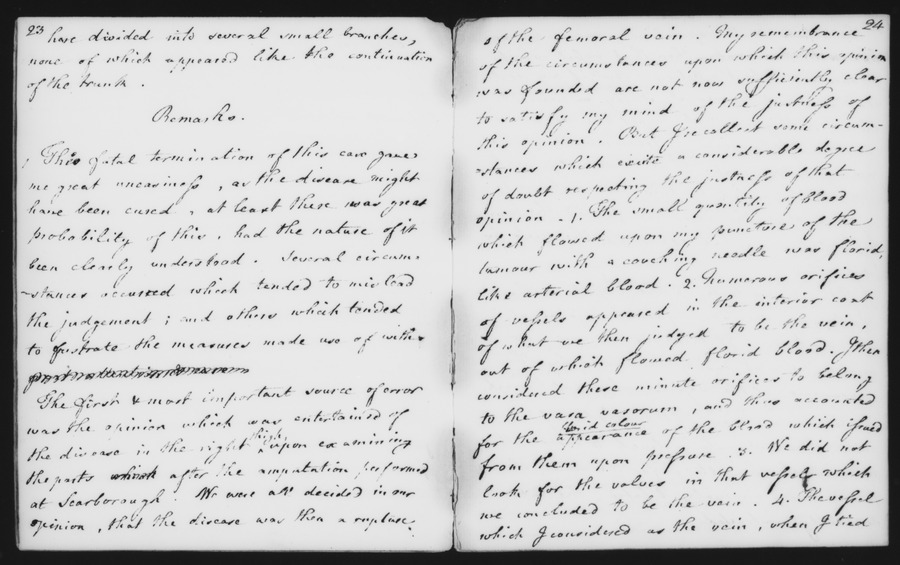 23
have divided into several small branches,
none of which appeared like the continuation
of the trunk.
Remarks.
This fatal termination of this case gave
me great uneasiness, as the disease might
have been cured, at least there was great
probability of this, had the nature of it
been clearly understood. Several circum-
-stances occurred which tended to mislead
the judgement; and others which tended
to frustrate the measures made use of with
The first & most important source of error
was the opinion which was entertained of
the disease in the right thigh upon examining
the parts which after the amputation performed
at Scarborough. We were all decided in our
opinion, that the disease was then a rupture
24
of the femoral vein. My remembrance
of the circumstances upon which this opinion
was founded are not now sufficiently clear
to satisfy my mind of the justness of
this opinion. But I recollect some circum-
-stances which excite a considerable degree
of doubt respecting the justness of that
opinion - 1. The small quantity of blood
which flowed upon my puncture of the
tumour with a couching needle was florid,
like arterial blood. 2. Numerous orifices
of vessels appeared in the interior coat
of what we then judged to be the vein,
out of which flowed florid blood. I then
considered these minute orifices to belong
to the vasa vasorum, and thus accounted
for the florid colour appearance of the blood which issued
from them upon pressure. 3. We did not
look for the valves in that vessel which
we concluded to be the vein. 4. The vessel
which I considered as the vein, when I tied